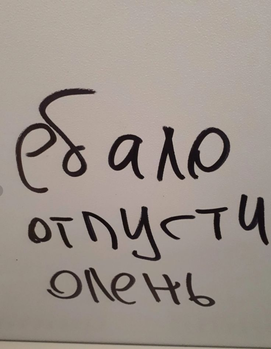 ебало
отпусти
олень